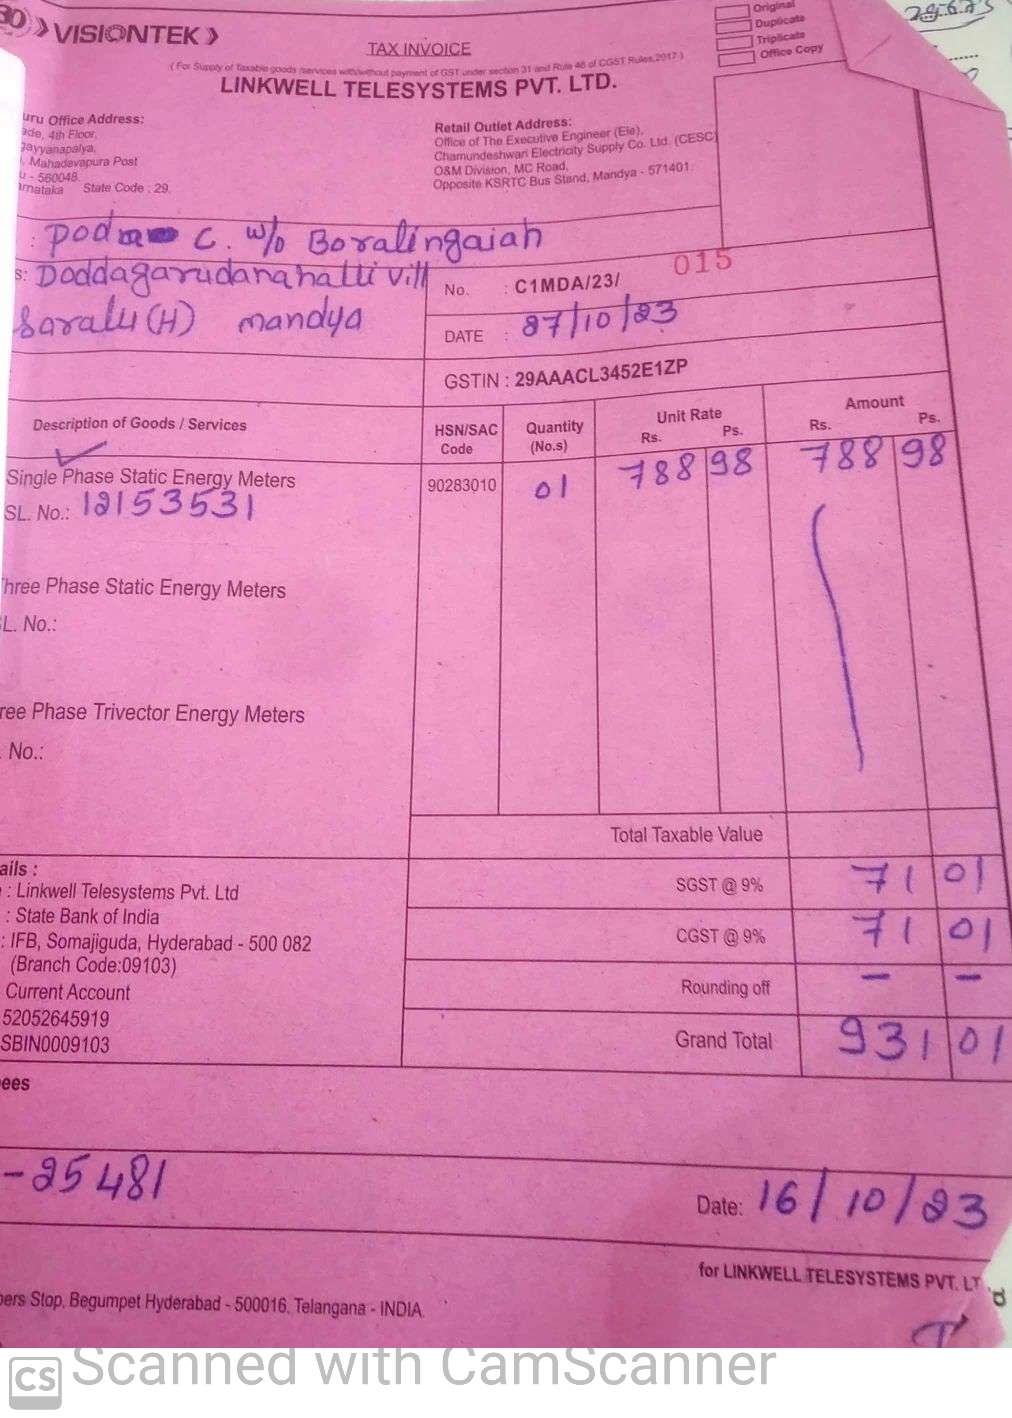 VISIONTEK
TAX INVOICE
Original
Duplicate
Triplicate
Office Copy
29.6.23
(For Supply of Taxable goods /services with/without payment of GST under section 31 and Rule 46 of CGST Rules,2017)
LINKWELL TELESYSTEMS PVT. LTD.
uru Office Address:
ade, 4th Floor,
gayyanapalya,
, Mahadevapura Post
u - 560048.
rnataka State Code : 29.
Retail Outlet Address:
Office of The Executive Engineer (Ele),
Chamundeshwari Electricity Supply Co. Ltd. (CESC)
O&M Division, MC Road,
Opposite KSRTC Bus Stand, Mandya - 571401.
: C. W/o Boralingaiah
s: Doddagarudanahalli vill
(H) mandya
No. : C1MDA/23/ 015
DATE : 27/10/23
GSTIN : 29AAACL3452E1ZP
Description of Goods / Services HSN/SAC Code Quantity (No.s) Unit Rate Rs. Ps. Amount Rs. Ps.
Single Phase Static Energy Meters 90283010 01 788 98 788 98
SL. No.: 12153531
hree Phase Static Energy Meters
L. No.:
ree Phase Trivector Energy Meters
. No.:
Total Taxable Value
SGST @ 9% 71 01
CGST @ 9% 71 01
Rounding off - -
Grand Total 931 01
ails :
: Linkwell Telesystems Pvt. Ltd
: State Bank of India
: IFB, Somajiguda, Hyderabad - 500 082
(Branch Code:09103)
Current Account
52052645919
SBIN0009103
ees
-25481
Date: 16/10/23
for LINKWELL TELESYSTEMS PVT. LT
ers Stop, Begumpet Hyderabad - 500016, Telangana - INDIA.
CS Scanned with CamScanner